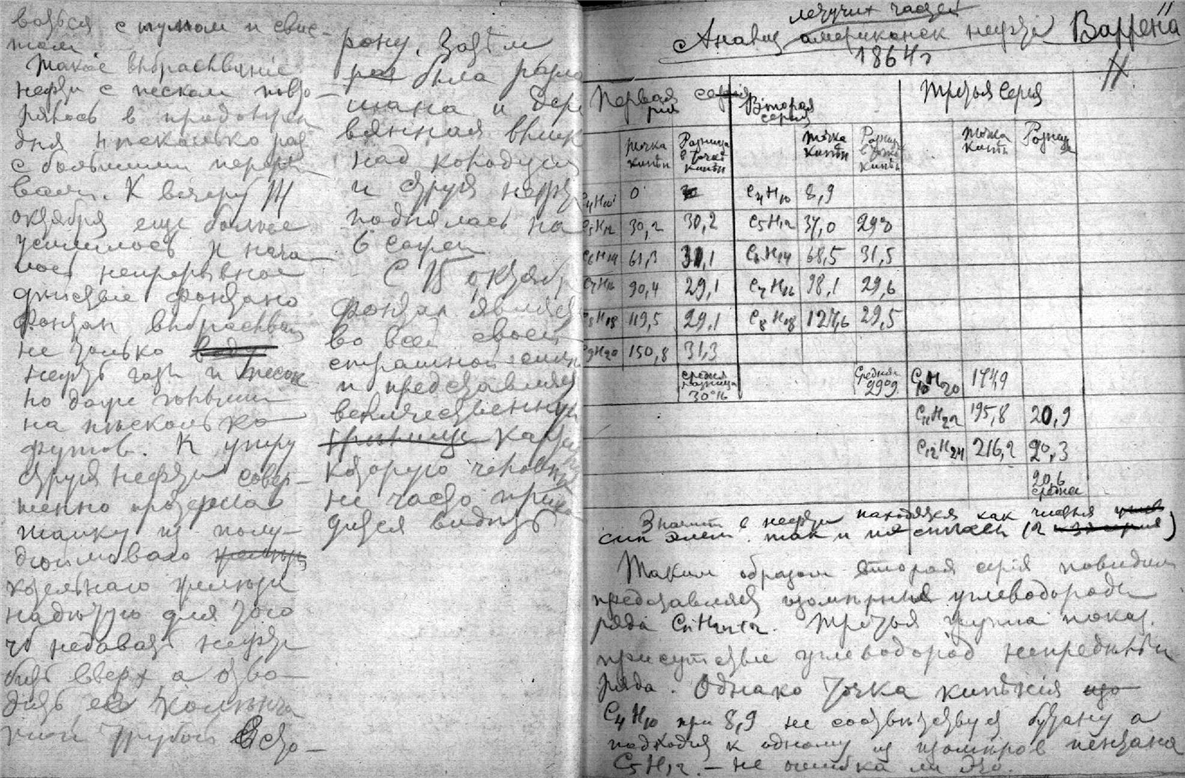 вался с шумом и свис-
том.
Такое выбрасывание
нефти с песком повто-
рялось в продолжен.
дня несколько раз
с большими перер
вами. К вечеру 14
октября еще больше
усилилось и нача
лось непрерывное
действие фонтана
фонтан выбрасывал
не только воду
нефть газы и песок
но даже
на несколько
футов. К утру
струя нефти совер-
шенно прорезала
шапку из полу-
дюймового
котельнаго железа
надетую для того
чтоб недавать нефти
бить вверх а отво-
дить ее
трубой в сто-
рону. Затем
была разло
мана и дере
вянная вышк
над колодцем
и струя нефт
поднялась на
6 сажен
С 15 октября
фонтан являлся
во всей своей
страшной силе
и представлял
величественную
картину
которую человеку
не часто прихо
дится видеть
летучих частей
Анализ американск нефти Варрена
1864 г
Первая серия Вторая серия Третья серия
точка кипен Разница в точке кипен точка кипен Разниц в точке кипен точка кипен Разниц
C4H10 0 C4H10 8,9
C5H12 30,2 30,2 C5H12 37,0 29,0
C6H14 61,3 31,1 C6H14 68,5 31,5
C7H16 90,4 29,1 C7H16 98,1 29,6
C8H18 119,5 29,1 C8H18 127,6 29,5
C9H20 150,8 31,3
средняя разница 30°16 Средняя 29°9 C10H20 174,9
C11H22 195,8 20,9
C12H24 216,2 20,3
20,6 средн
Значит в нефти находятся как
так и
Таким образом вторая серія повидим
представляет изомерные углеводороды
ряда CnH2n+2. Третья группа показ.
присутствие углеводород непредельн
ряда. Однако точка кипѣнія
C4H10 при 8,9 не соответствует бутану а
подходит к одному из изомеров пентана
C5H12. – не ошибка ли это.